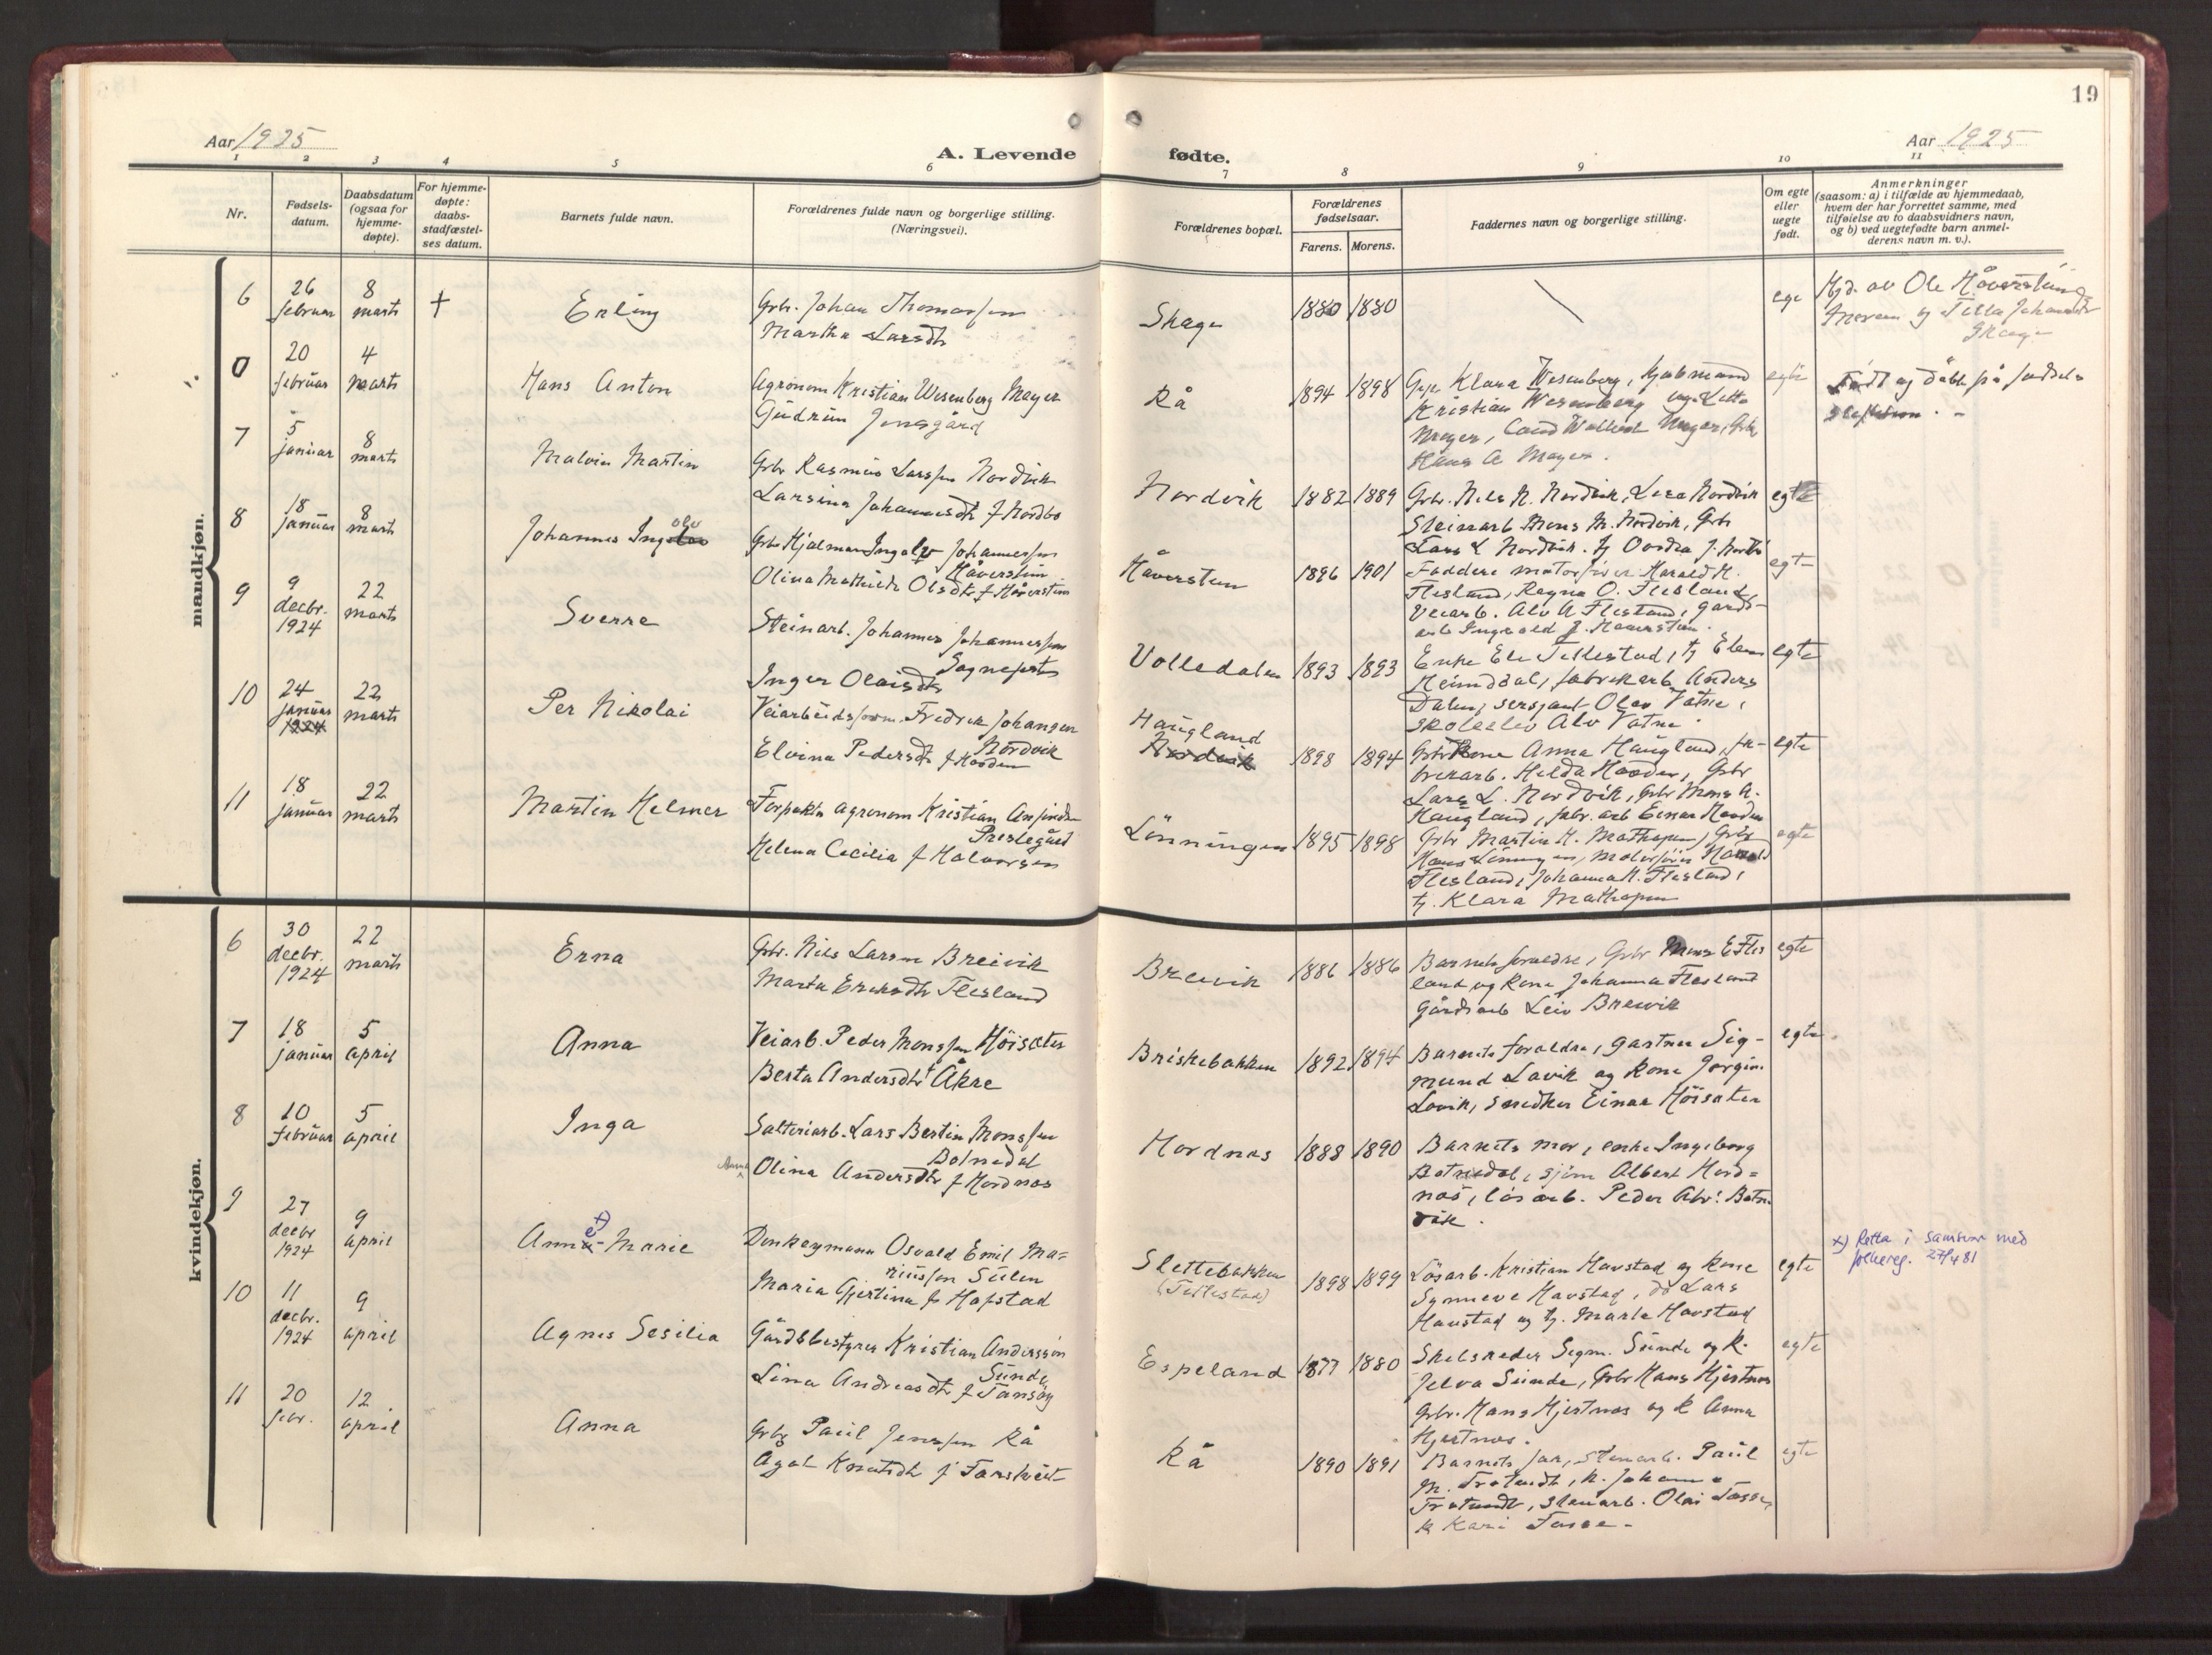 19
Aar 1925
A. Levende
fødte.
Aar 1925
1 2 3 4 5 6 7 8 9 10 11
Nr.
Fødsels-
datum.
Daabsdatum
(ogsaa for
hjemme-
døpte).
For hjemme-
døpte:
daabs-
stadfæstel-
ses datum.
Barnets fulde navn.
Forældrenes fulde navn og borgerlige stilling.
(Næringsvei).
Forældrenes bopæl.
Forældrenes
fødselsaar.
Farens. Morens.
Faddernes navn og borgerlige stilling.
Om egte
eller
uegte
født.
Anmerkninger
(saasom: a) i tilfælde av hjemmedaab,
hvem der har forrettet samme, med
tilføielse av to daabsvidners navn,
og b) ved uegtefødte barn anmel-
derens navn m. v.).
mandkjøn.
6
26
februar
8
marts
+
Erling
Grbr. Johan Thomassen
Martha Larsdtr
Skage
1880 1880
egte
Hjd. av Ole Håverstein
0
20
februar
4
marts
Hans Anton
Agronom Kristian Wesenberg Meyer
Gudrun Jensgård
Rå
1894 1898
Klara Wesenberg, Kjøbmand
Kristian Wesenberg
Meyer, Cand Meyer, Grb.
Hans A Meyer.
egte
Født og døbt på fødsels
7
5
januar
8
marts
Malvin Martin
Grbr Rasmus Larssen Nordvik
Larsina Johannesdtr f Nordbø
Nordvik
1882 1889
Grbr. Nils N. Nordvik, Lava Nordvik
Steinarb Mons M. Nordvik, Grbr
Lars L Nordvik.
egte
8
18
januar
8
marts
Johannes Ingolv
Grbr Hjalmar Ingolv Johannessen
Håverstein
Olina Mathilde Olsdtr f Håverstein
Håverstein
1896 1901
Faddere motorfører Harald H.
Flesland, Ragna O. Flesland,
Veiarb. Alv A Flesland, gårds-
arb Ingvald J. Haverstein.
egte
9
9
decbr.
1924
22
marts
Sverre
Steinarb. Johannes Johannessen
Sognepste
Inger Olaisdtr
Volledalen
1893 1893
Enke Eli Tellestad, tj Elen
Heimdal, fabrikarb Anders
Dalen, sersjant Olav Vatne,
skoleelev Alv Vatne.
egte
10
24
januar
1924
22
marts
Per Nikolai
Veiarbeidsform. Fredrik Johansen
Nordvik
Elvina Pedersdtr f Hodden
Haugland
Nordvik
1898 1894
Grbrkone Anna Haugland, fa-
brikarb. Helda Hodden, Grbr
Lars L. Nordvik, Grbr Mons A.
Haugland, fabr. arb Einar Hodden
egte
11
18
januar
22
marts
Martin Helmer
Forpakter agronom Kristian
Prestegård
Helena Cecilia f Halvorsen
Lönningen
1895 1898
Grbr Martin H. Mathopen, Grbr
Hans Lönningen, Motorfører Harald
Flesland, Johanna H. Flesland,
tj. Klara Mathopen
egte
kvindekjøn.
6
30
decbr.
1924
22
marts
Erna
Grbr. Nils Larsen Breivik
Marta Eriksdtr Flesland
Breivik
1886 1886
Barnets foreldre, Grbr Mons E Fles
land og kone Johanna Flesland
Gårdsarb Leiv Breivik
egte
7
18
januar
5
april
Anna
Veiarb. Peder Monssen Höisæter
Berta Andersdtr f Åkre
Briskebakken
1892 1894
Barnets foreldre, gartner Sig-
mund Lavik og kone Jorgine
Lavik, snedker Einar Höisæter
egte
8
10
februar
5
april
Inga
Salteriarb. Lars Bertin Monssen
Botnedal
Anna Olina Andersdtr f Hordnæs
Hordnæs
1888 1890
Barnets mor, enke Ingeborg
Botnedal, sjöm Albert Hord=
næs, lösarb. Peder Abr. Botn
vik.
9
27
decbr
1924
9
april
Anne x) Marie
Donkeymann Osvald Emil Ma=
riussen Sulen
Maria Gjertina f Hafstad
Slettebakken
(Tellestad)
1898 1899
Lösarb. Kristian Havstad og kone
Synneve Havstad, do Lars
Havstad og tj. Marta Havstad
egte
x) Retta i samsvar med
folkereg. 27/4 81
10
11
decbr.
1924
9
april
Agnes Sesilia
Gårdsbestyrer Kristian Andersson
Sunde
Lina Andreasdtr f Tansøy
Espeland
1877 1880
Skibsreder Sigm. Sunde og k.
Jelva Sunde, Grbr Hans Hjertnæs
Grbr. Hans Hjertnæs og k Anna
Hjertnæs.
egte
11
20
febr.
12
april
Anna
Grbr Paul Jenssen Rå
Agat Knutsdtr f Farstveit
Rå
1890 1891
Barnets far, stenarb. Paul
M. Trætundt, k. Johanna
Trætundt, stenarb. Olai Tosse,
k Kari Tosse.
egte